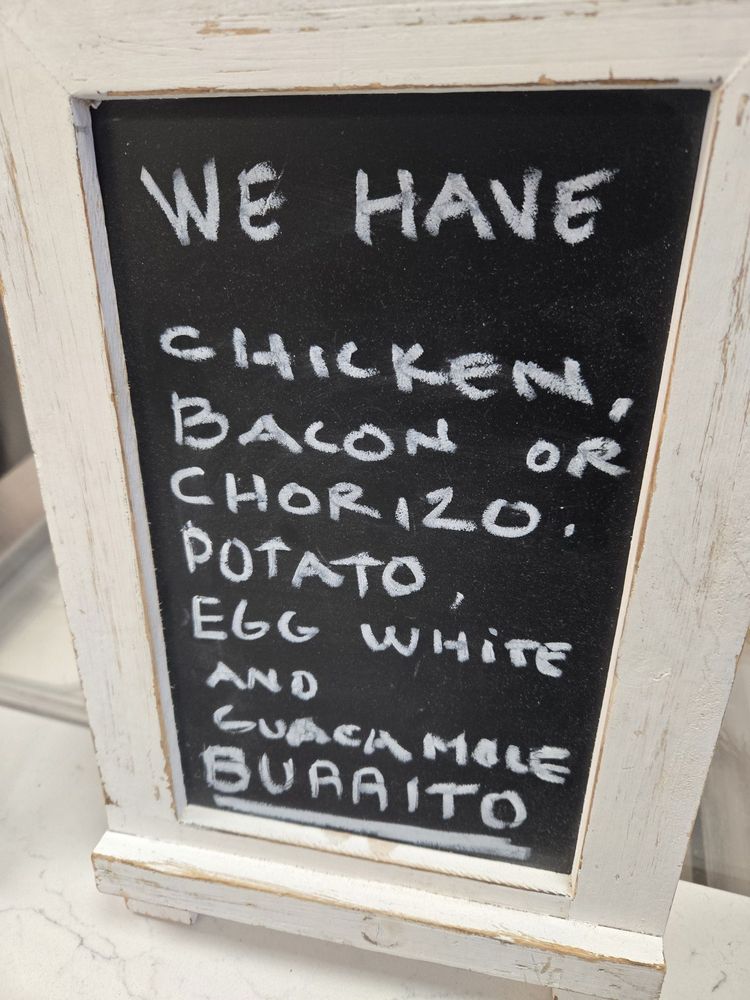 WE HAVE
CHICKEN,
BACON OR
CHORIZO.
POTATO,
EGG WHITE
AND
GUACAMOLE
BURRITO